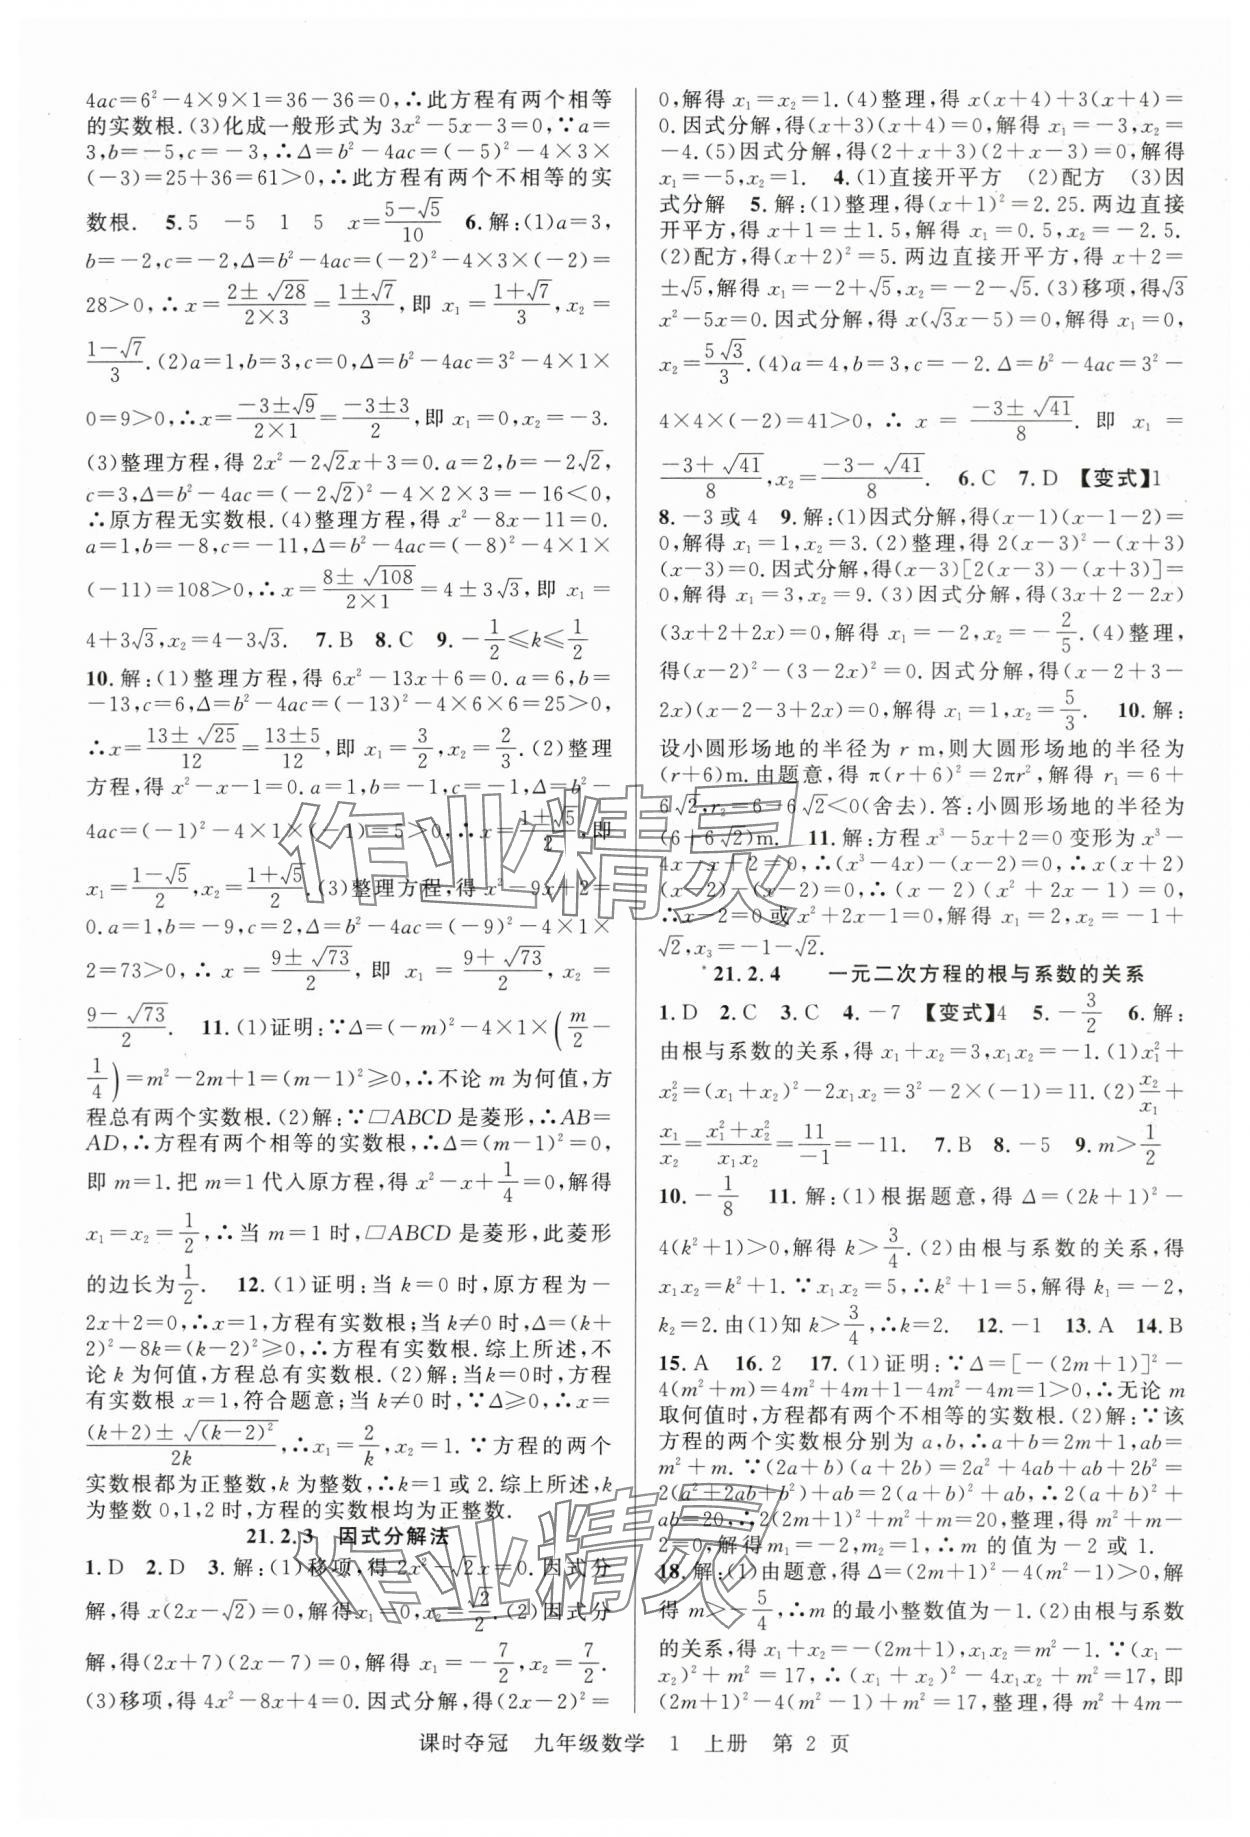 4ac=6²-4×9×1=36-36=0,∴此方程有两个相等
的实数根.(3)化成一般形式为 3x²-5x-3=0,∵a=
3,b=-5,c=-3,∴Δ=b²-4ac=(-5)²-4×3×
(-3)=25+36=61>0,∴此方程有两个不相等的实
数根. 5.5 -5 1 5 x=(5-√5)/10 6.解:(1)a=3,
b=-2,c=-2,Δ=b²-4ac=(-2)²-4×3×(-2)=
28>0,∴x=(2±√28)/(2×3)=(1±√7)/3,即 x₁=(1+√7)/3,x₂=
(1-√7)/3.(2)a=1,b=3,c=0,Δ=b²-4ac=3²-4×1×
0=9>0,∴x=(-3±√9)/(2×1)=(-3±3)/2,即 x₁=0,x₂=-3.
(3)整理方程,得 2x²-2√2x+3=0.a=2,b=-2√2,
c=3,Δ=b²-4ac=(-2√2)²-4×2×3=-16<0,
∴原方程无实数根.(4)整理方程,得 x²-8x-11=0.
a=1,b=-8,c=-11,Δ=b²-4ac=(-8)²-4×1×
(-11)=108>0,∴x=(8±√108)/(2×1)=4±3√3,即 x₁=
4+3√3,x₂=4-3√3. 7.B 8.C 9.-1/2≤k≤1/2
10.解:(1)整理方程,得 6x²-13x+6=0.a=6,b=
-13,c=6,Δ=b²-4ac=(-13)²-4×6×6=25>0,
∴x=(13±√25)/12=(13±5)/12,即 x₁=3/2,x₂=2/3.(2)整理
方程,得 x²-x-1=0.a=1,b=-1,c=-1,Δ=b²-
4ac=(-1)²-4×1×(-1)=5>0,∴x=(1±√5)/2,即
x₁=(1-√5)/2,x₂=(1+√5)/2.(3)整理方程,得 x²-9x+2=
0.a=1,b=-9,c=2,Δ=b²-4ac=(-9)²-4×1×
2=73>0,∴x=(9±√73)/2,即 x₁=(9+√73)/2,x₂=
(9-√73)/2. 11.(1)证明:∵Δ=(-m)²-4×1×(m/2-
1/4)=m²-2m+1=(m-1)²≥0,∴不论 m 为何值,方
程总有两个实数根.(2)解:∵▱ABCD 是菱形,∴AB=
AD,∴方程有两个相等的实数根,∴Δ=(m-1)²=0,
即 m=1.把 m=1 代入原方程,得 x²-x+1/4=0,解得
x₁=x₂=1/2,∴当 m=1 时,▱ABCD 是菱形,此菱形
的边长为1/2. 12.(1)证明:当 k=0 时,原方程为-
2x+2=0,∴x=1,方程有实数根;当 k≠0 时,Δ=(k+
2)²-8k=(k-2)²≥0,∴方程有实数根.综上所述,不
论 k 为何值,方程总有实数根.(2)解:当 k=0 时,方程
有实数根 x=1,符合题意;当 k≠0 时,∵Δ≥0,∴x=
((k+2)±√(k-2)²)/2k,∴x₁=2/k,x₂=1.∵方程的两个
实数根都为正整数,k 为整数,∴k=1 或 2.综上所述,k
为整数 0,1,2 时,方程的实数根均为正整数.
21.2.3 因式分解法
1.D 2.D 3.解:(1)移项,得 2x²-√2x=0.因式分
解,得 x(2x-√2)=0,解得x₁=0,x₂=√2/2.(2)因式分
解,得(2x+7)(2x-7)=0,解得 x₁=-7/2,x₂=7/2.
(3)移项,得 4x²-8x+4=0.因式分解,得(2x-2)²=
0,解得 x₁=x₂=1.(4)整理,得 x(x+4)+3(x+4)=
0.因式分解,得(x+3)(x+4)=0,解得 x₁=-3,x₂=
-4.(5)因式分解,得(2+x+3)(2+x-3)=0,解得
x₁=-5,x₂=1. 4.(1)直接开平方 (2)配方 (3)因
式分解 5.解:(1)整理,得(x+1)²=2.25.两边直接
开平方,得 x+1=±1.5,解得 x₁=0.5,x₂=-2.5.
(2)配方,得(x+2)²=5.两边直接开平方,得 x+2=
±√5,解得 x₁=-2+√5,x₂=-2-√5.(3)移项,得√3
x²-5x=0.因式分解,得 x(√3x-5)=0,解得 x₁=0,
x₂=5√3/3.(4)a=4,b=3,c=-2,Δ=b²-4ac=3²-
4×4×(-2)=41>0,∴x=(-3±√41)/8.即 x₁=
(-3+√41)/8,x₂=(-3-√41)/8. 6.C 7.D 【变式】1
8.-3 或 4 9.解:(1)因式分解,得(x-1)(x-1-2)=
0,解得 x₁=1,x₂=3.(2)整理,得 2(x-3)²-(x+3)
(x-3)=0.因式分解,得(x-3)[2(x-3)-(x+3)]=
0,解得 x₁=3,x₂=9.(3)因式分解,得(3x+2-2x)
(3x+2+2x)=0,解得 x₁=-2,x₂=-2/5.(4)整理,
得(x-2)²-(3-2x)²=0.因式分解,得(x-2+3-
2x)(x-2-3+2x)=0,解得 x₁=1,x₂=5/3. 10.解:
设小圆形场地的半径为 r m,则大圆形场地的半径为
(r+6)m.由题意,得 π(r+6)²=2πr²,解得 r₁=6+
6√2,r₂=6-6√2<0(舍去).答:小圆形场地的半径为
(6+6√2)m. 11.解:方程 x³-5x+2=0 变形为 x³-
4x-x+2=0,∴(x³-4x)-(x-2)=0,∴x(x+2)
(x-2)-(x-2)=0,∴(x-2)(x²+2x-1)=0,
∴x-2=0 或 x²+2x-1=0,解得 x₁=2,x₂=-1+
√2,x₃=-1-√2.
21.2.4 一元二次方程的根与系数的关系
1.D 2.C 3.C 4.-7 【变式】4 5.-3/2 6.解:
由根与系数的关系,得 x₁+x₂=3,x₁x₂=-1.(1)x₁²+
x₂²=(x₁+x₂)²-2x₁x₂=3²-2×(-1)=11.(2)x₂/x₁+
x₁/x₂=(x₁²+x₂²)/x₁x₂=11/-1=-11. 7.B 8.-5 9.m>1/2
10.-1/8 11.解:(1)根据题意,得 Δ=(2k+1)²-
4(k²+1)>0,解得 k>3/4.(2)由根与系数的关系,得
x₁x₂=k²+1.∵x₁x₂=5,∴k²+1=5,解得 k₁=-2,
k₂=2.由(1)知 k>3/4,∴k=2. 12.-1 13.A 14.B
15.A 16.2 17.(1)证明:∵Δ=[-(2m+1)]²-
4(m²+m)=4m²+4m+1-4m²-4m=1>0,∴无论 m
取何值时,方程都有两个不相等的实数根.(2)解:∵该
方程的两个实数根分别为 a,b,∴a+b=2m+1,ab=
m²+m.∵(2a+b)(a+2b)=2a²+4ab+ab+2b²=
2(a²+2ab+b²)+ab=2(a+b)²+ab,∴2(a+b)²+
ab=20,∴2(2m+1)²+m²+m=20,整理,得 m²+m-
2=0,解得m₁=-2,m₂=1,∴m 的值为-2 或 1.
18.解:(1)由题意,得 Δ=(2m+1)²-4(m²-1)>0,解
得 m>-5/4,∴m 的最小整数值为-1.(2)由根与系数
的关系,得 x₁+x₂=-(2m+1),x₁x₂=m²-1.∵(x₁-
x₂)²+m²=17,∴(x₁+x₂)²-4x₁x₂+m²=17,即
(2m+1)²-4(m²-1)+m²=17,整理,得 m²+4m-
课时夺冠 九年级数学 1 上册 第 2 页
作业精灵
作业精灵